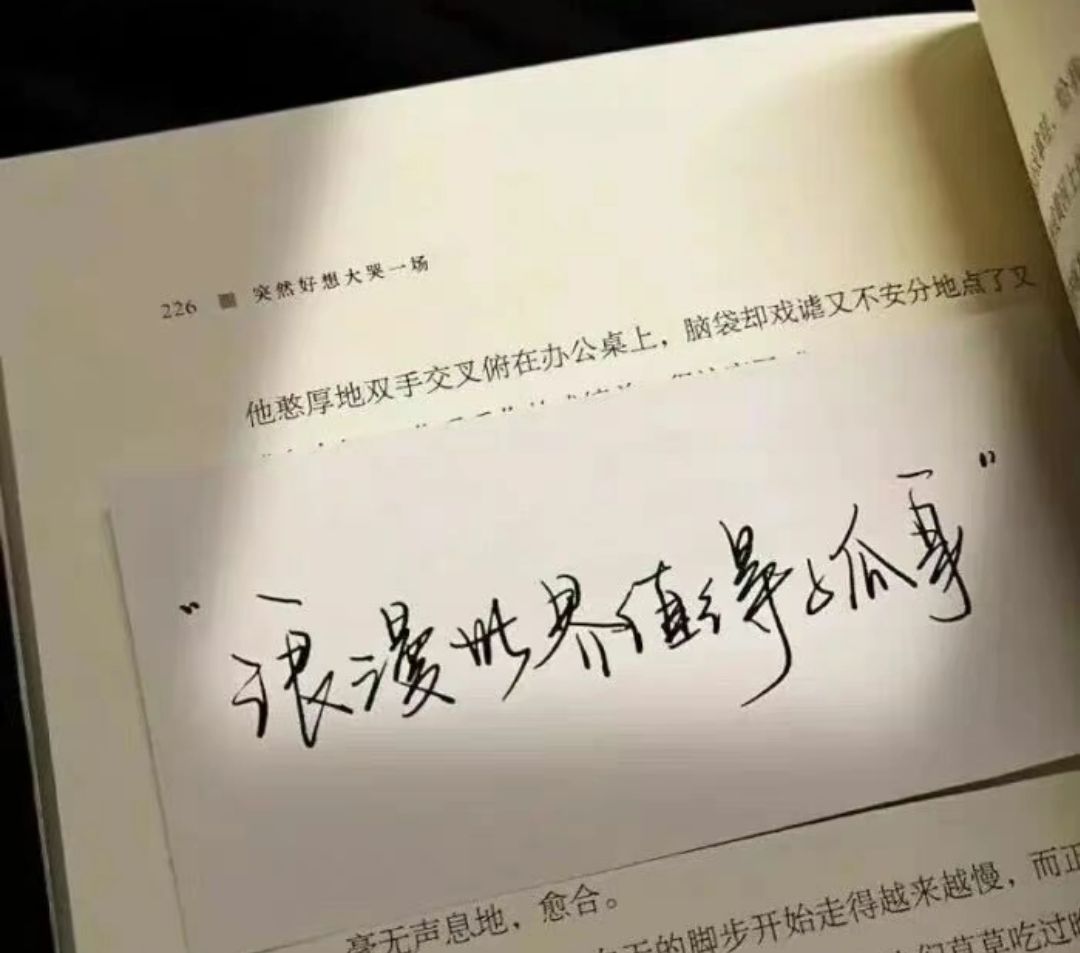 226 突然好想大哭一场
他憨厚地双手交叉俯在办公桌上，脑袋却戏谑又不安分地点了又
“浪漫世界值得孤身”
毫无声息地，愈合。
的脚步开始走得越来越慢，而正
们草草吃过晚